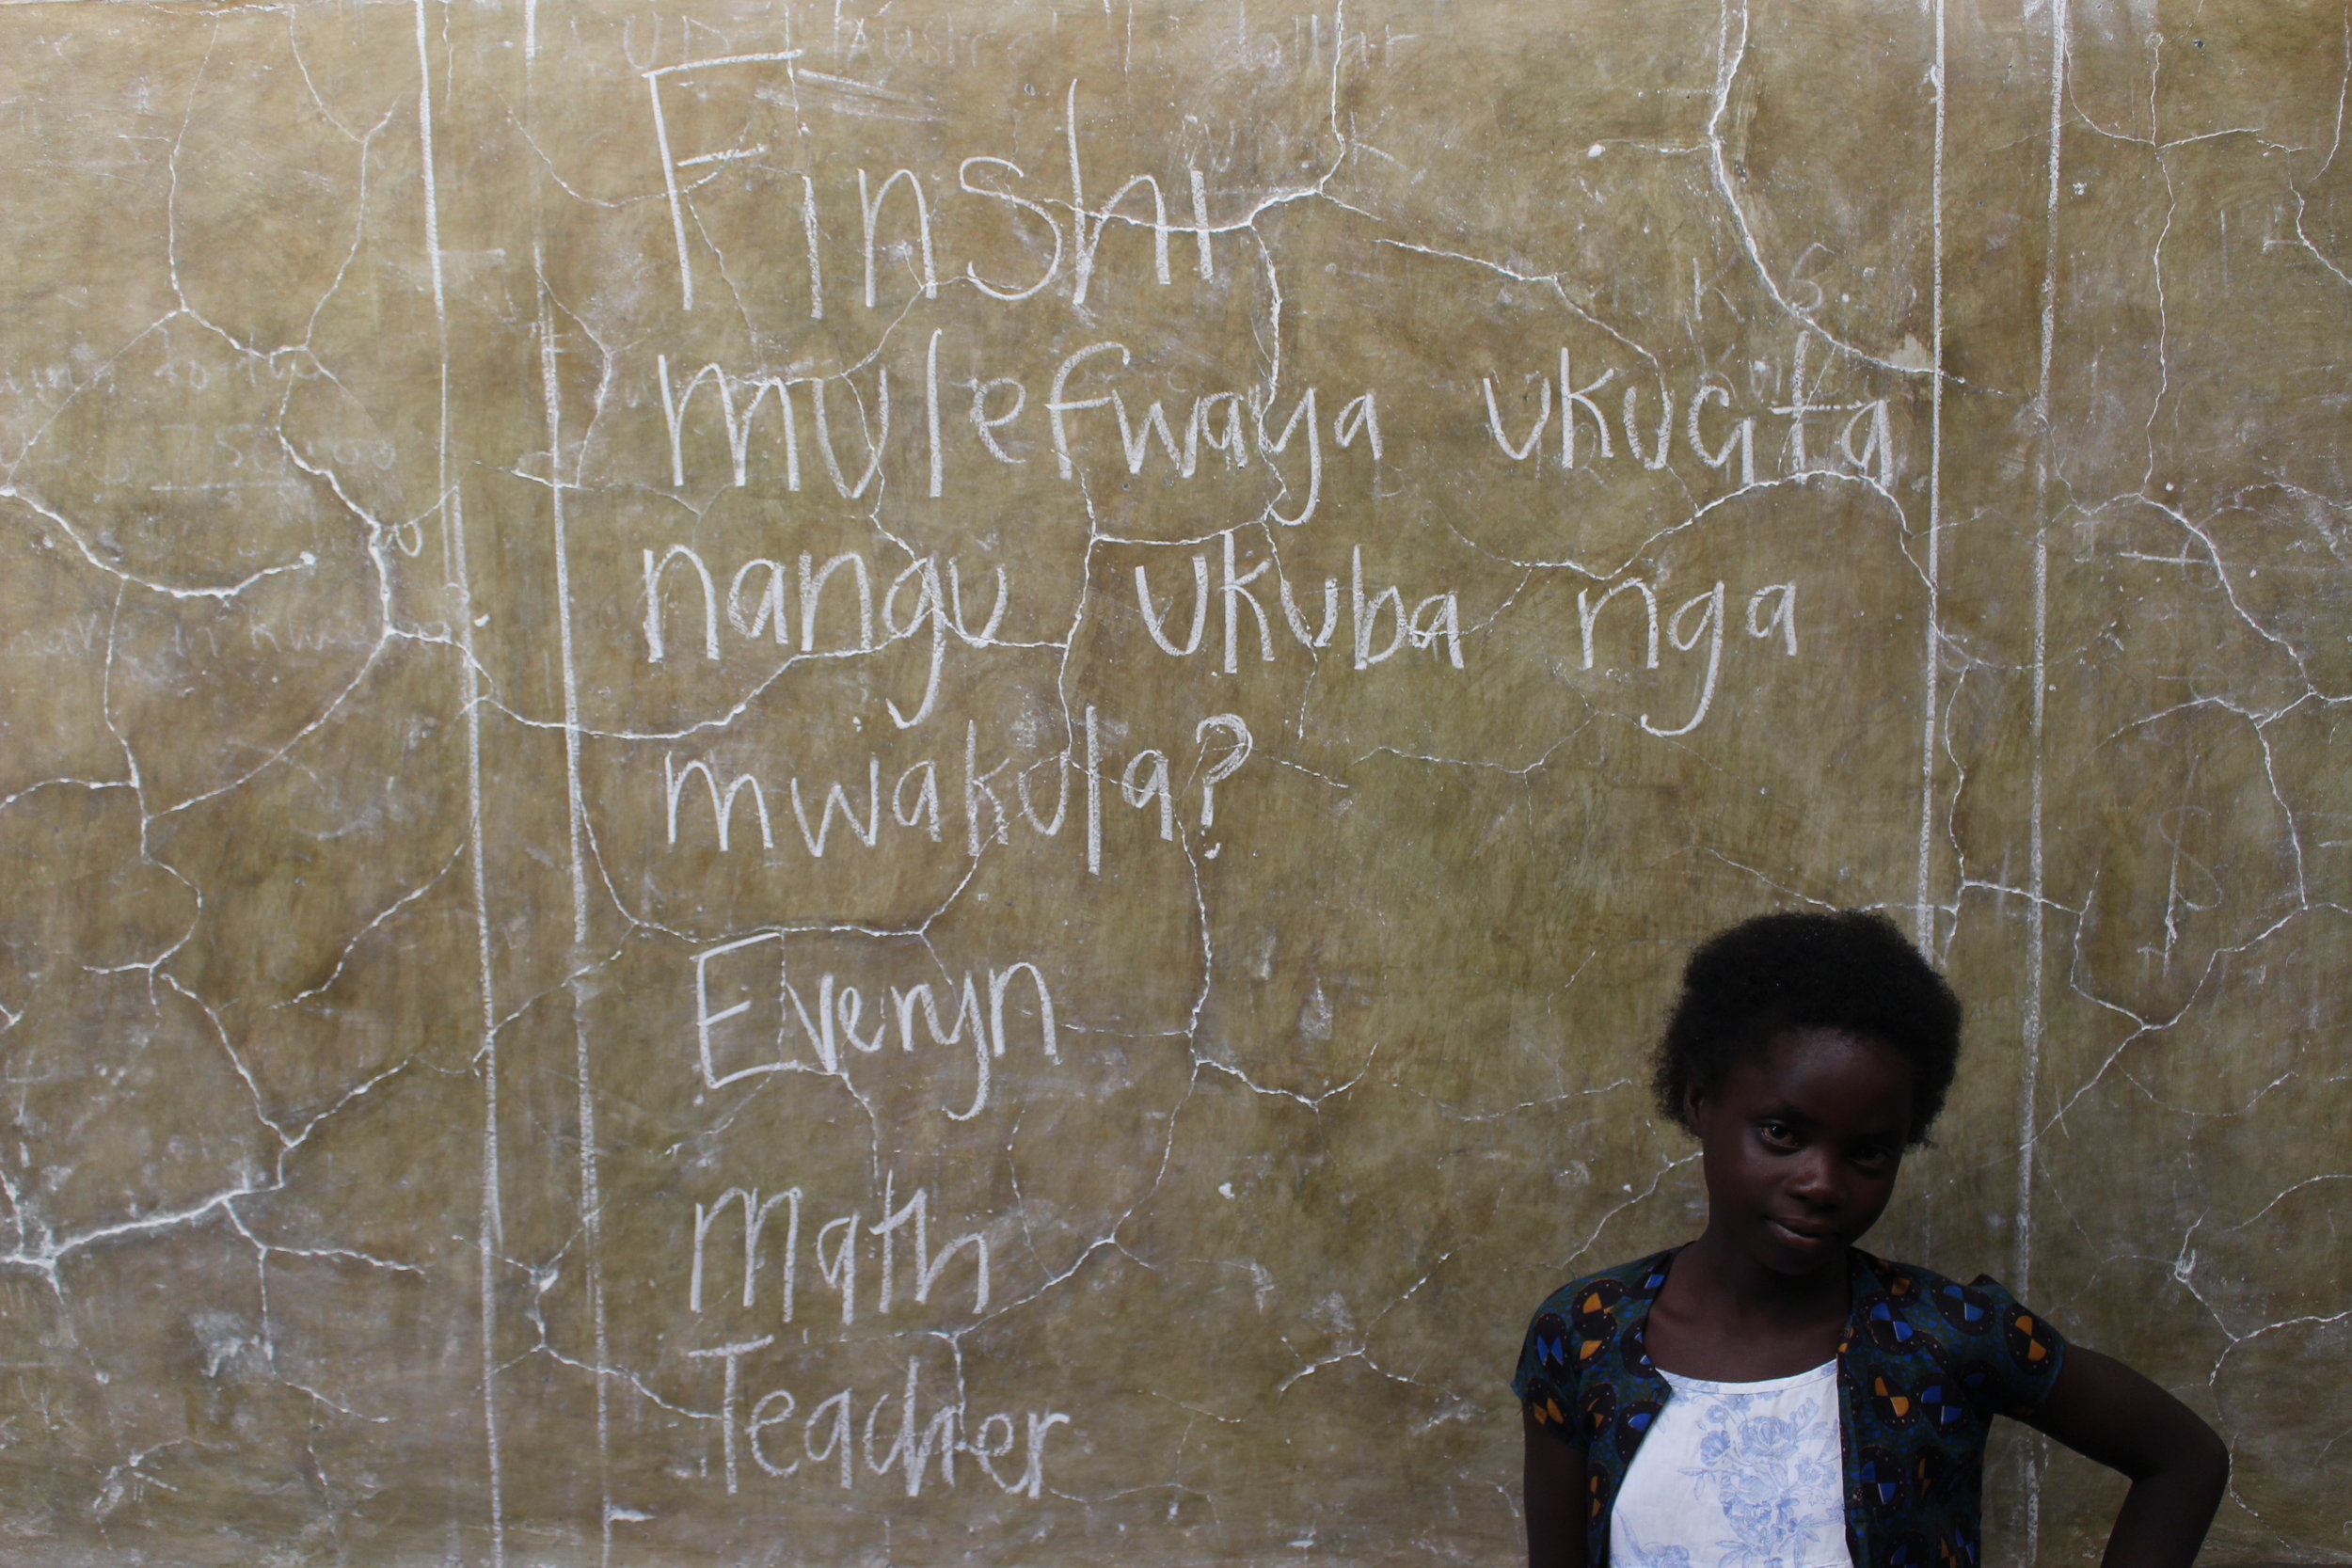 Finshi
mulefwaya ukucita
nangu ukuba nga
mwakula?
Everyn
Math
Teacher